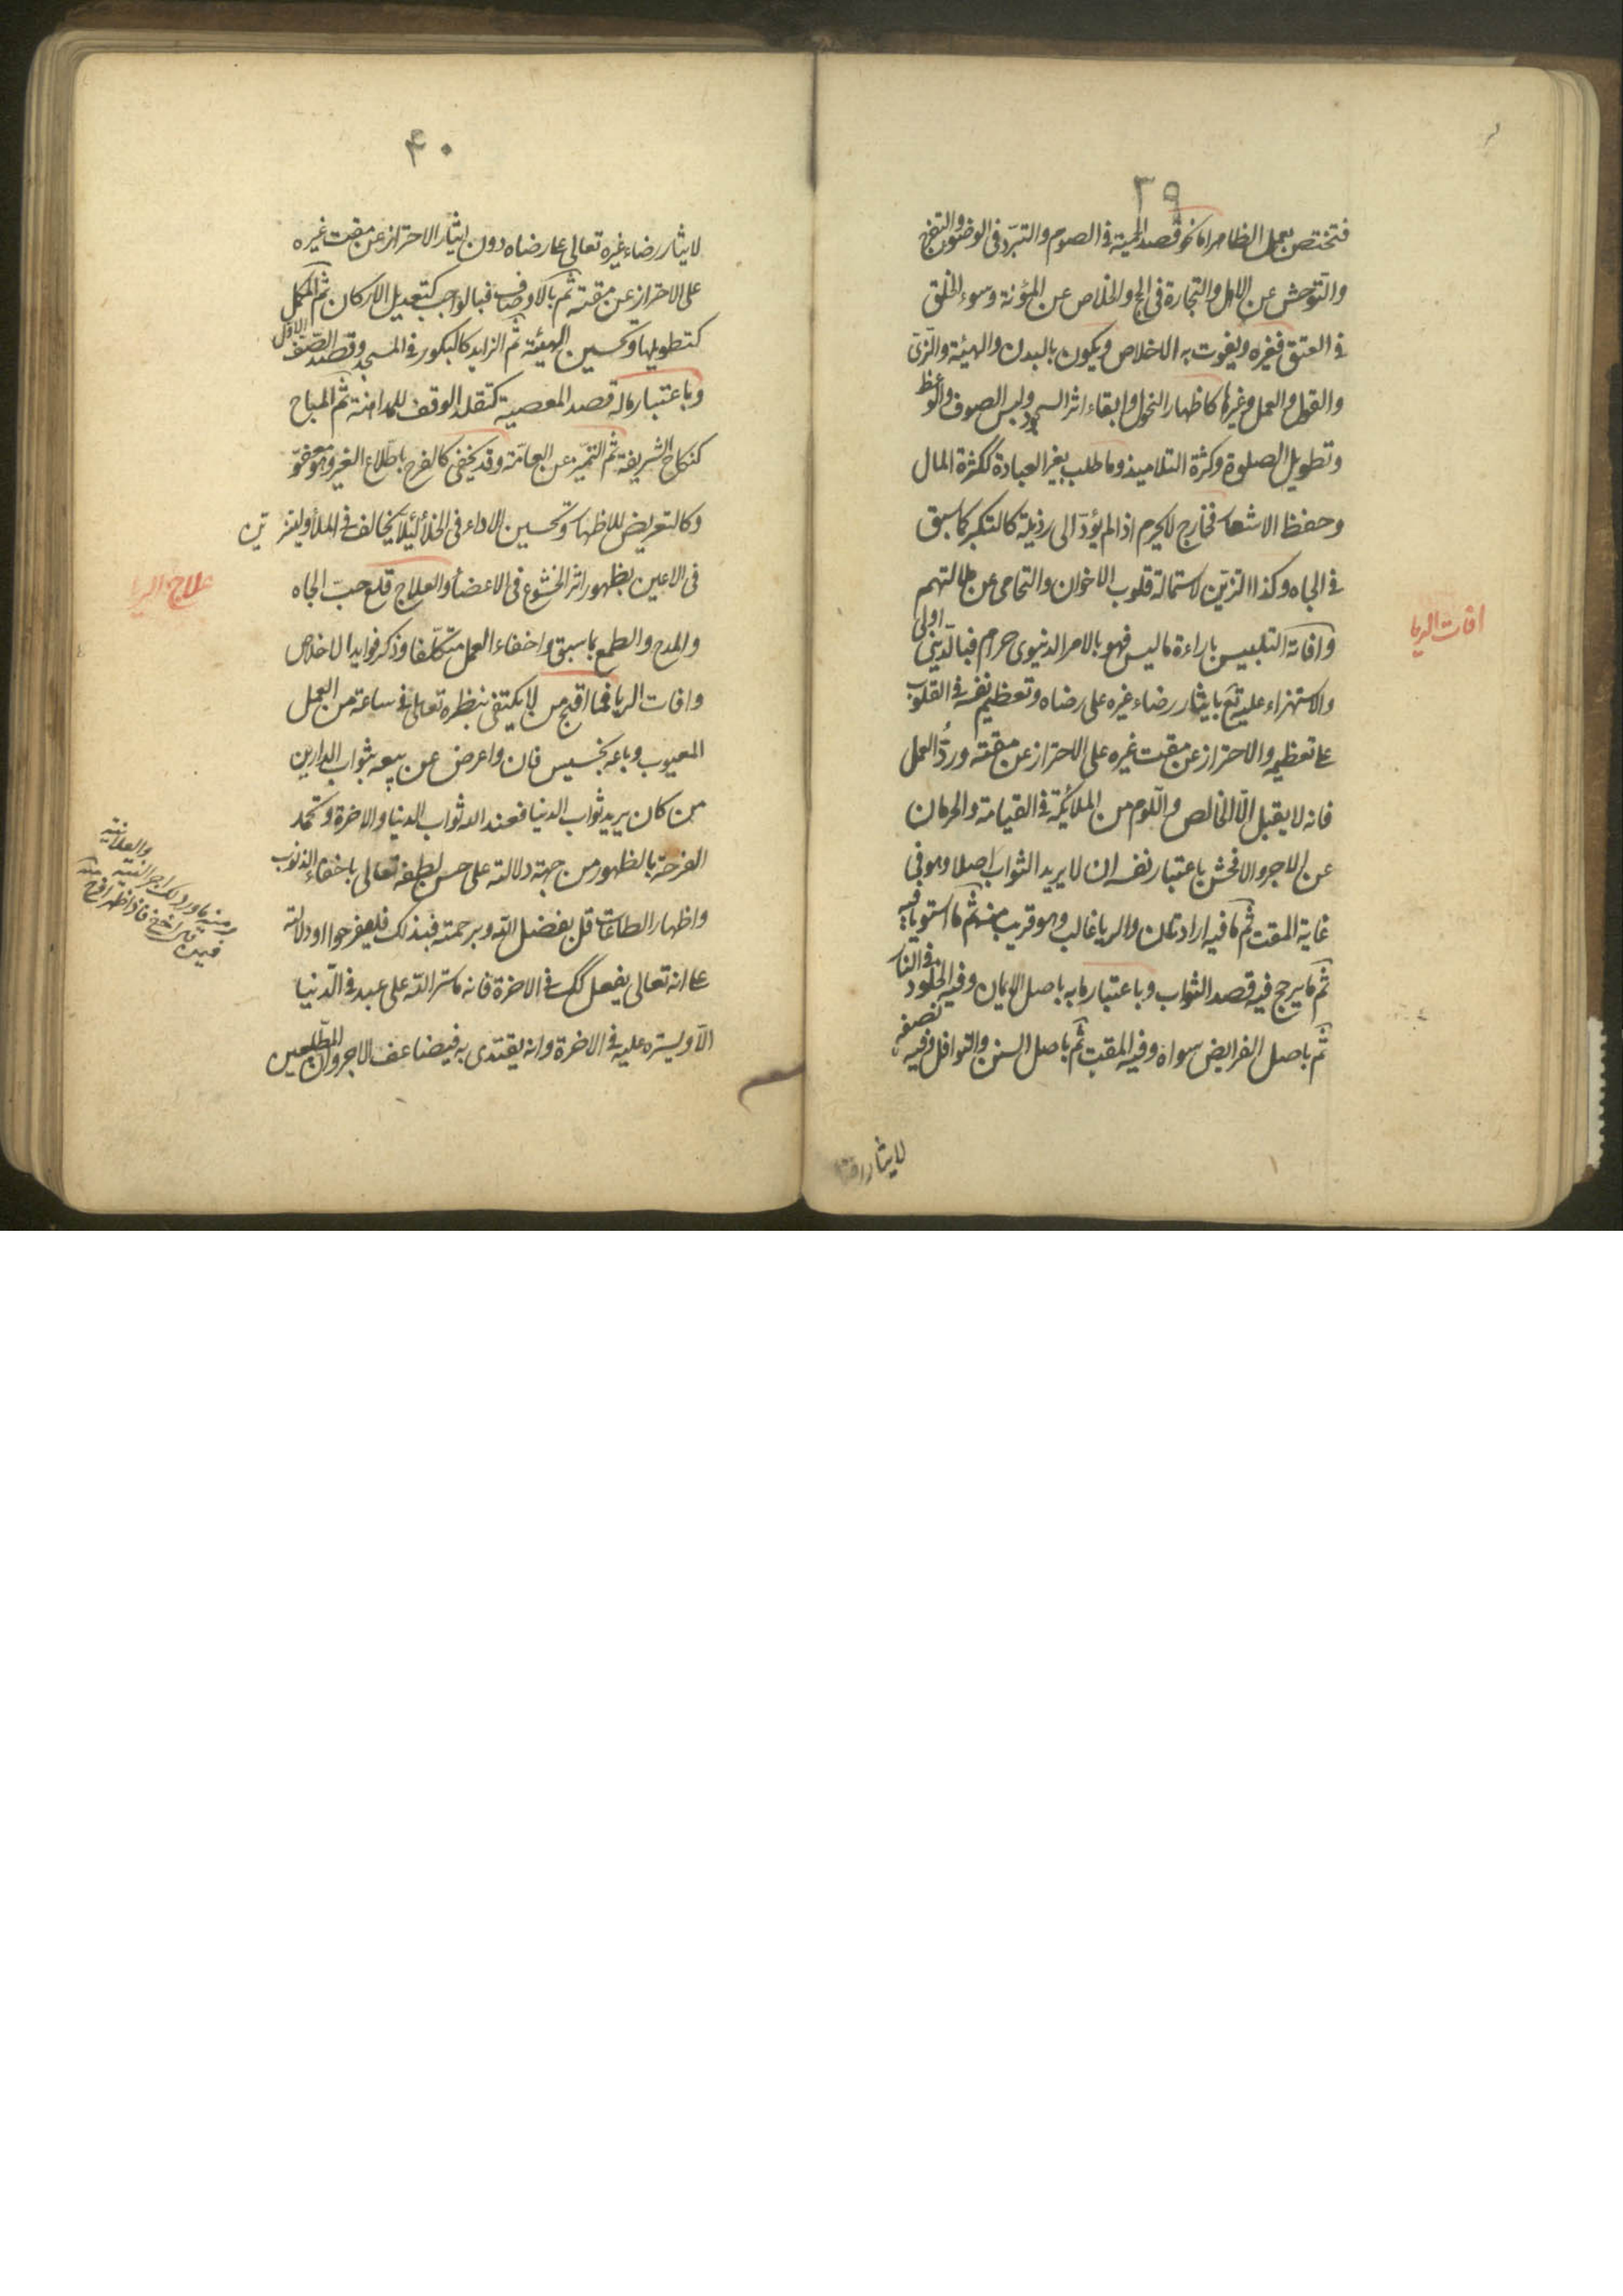 ٣٩
فتختص بعمل الظاهر اما نحو قصد الحمية فى الصوم والتبرّد فى الوضوء والتفرج
والتوحش عن الاهل والتجارة فى الحج والخلاص عن المؤنة وسوء الخلق
فى العتق فغيره ويفوت به الاخلاص ويكون بالبدن والهيئة والزىّ
والقول والعمل وغيرها كاظهار النحول وابقاء اثر السجود ولبس الصوف والوعظ
وتطويل الصلوة وكثرة التلاميذ وما طلب بغير العبادة ككثرة المال
وحفظ الاشعار فخارج لا يحرم اذا لم يؤدّ الى رذيلة كالتكبر كما سبق
فى الجاه وكذا التزيّن لاستمالة قلوب الاخوان والتحامى عن ملالتهم
وآفاته التلبيس باراءة ما ليس فهو بالامر الدنيوى حرام فبالدّينى اولى
والاستهزاء عليه تع بايثار رضاء غيره على رضاه وتعظيم نفسه فى القلوب
عا تعظيمه والاحتراز عن مقت غيره على الاحتراز عن مقته وردّ العمل
فانه لا يقبل الّا الخالص واللوم من الملايكة فى القيامة والحرمان
عن الاجر والافحش باعتبار نفسه ان لا يريد الثواب اصلا وهو فى
غاية المقت ثم ما فيه ارادتان والريا غالب وهو قريب منه ثم ما استويا فيه
ثم ما يرجح فيه قصد الثواب وباعتبار ما به باصل الايمان وفيه الخلود فى النار
ثم باصل الفرايض سواه وفيه المقت ثم باصل السنن والنوافل وفيه نصفه
لايثار
افات الريا
٤٠
لايثار رضاء غيره تعالى عا رضاه دون ايثار الاحتراز عن مقت غيره
على الاحتراز عن مقته ثم بالاوصاف فبالواجب كتعديل الاركان ثم المكمل
كتطويلها وتحسين الهيئة ثم الزايد كالبكور فى المسجد وقصد الصّف الاول
وباعتبار ما له قصد المعصية كتقلد الوقف للمداهنة ثم المباح
كنكاح الشريفة ثم التميّز عن العامّة وقد يخفى كالفرح باطّلاع الغير وهو معفوّ
وكالتعريض للاظهار وتحسين الاداء فى الخلأ ليلا يخالف فى الملأ وليتزيّن
فى الاعين بظهور اثر الخشوع فى الاعضأ والعلاج قلع حبّ الجاه
والمدح والطمع بما سبق واخفاء العمل متكلّفا وذكر فوايد الاخلاص
وافات الريا فما اقبح من لا يكتفى بنظره تعالى فى ساعة من العمل
المعيوب وباعه بخسيس فان واعرض عن بيعه بثواب الدارين
من كان يريد ثواب الدنيا فعند الله ثواب الدنيا والاخرة وتحمد
الفرحة بالظهور من جهة دلالته على حسن لطفه تعالى باخفاء الذنوب
واظهار الطاعات قل بفضل الله وبرحمته فبذلك فليفرحوا او دلالته
عا انه تعالى يفعل كك فى الاخرة فانه ما ستر الله على عبد فى الدّنيا
الّا ويستره عليه فى الاخرة وانه يقتدى به فيضاعف الاجر وان المطّلعين
علاج الريا
ومنه ما ورد لك اجر السر والعلانية